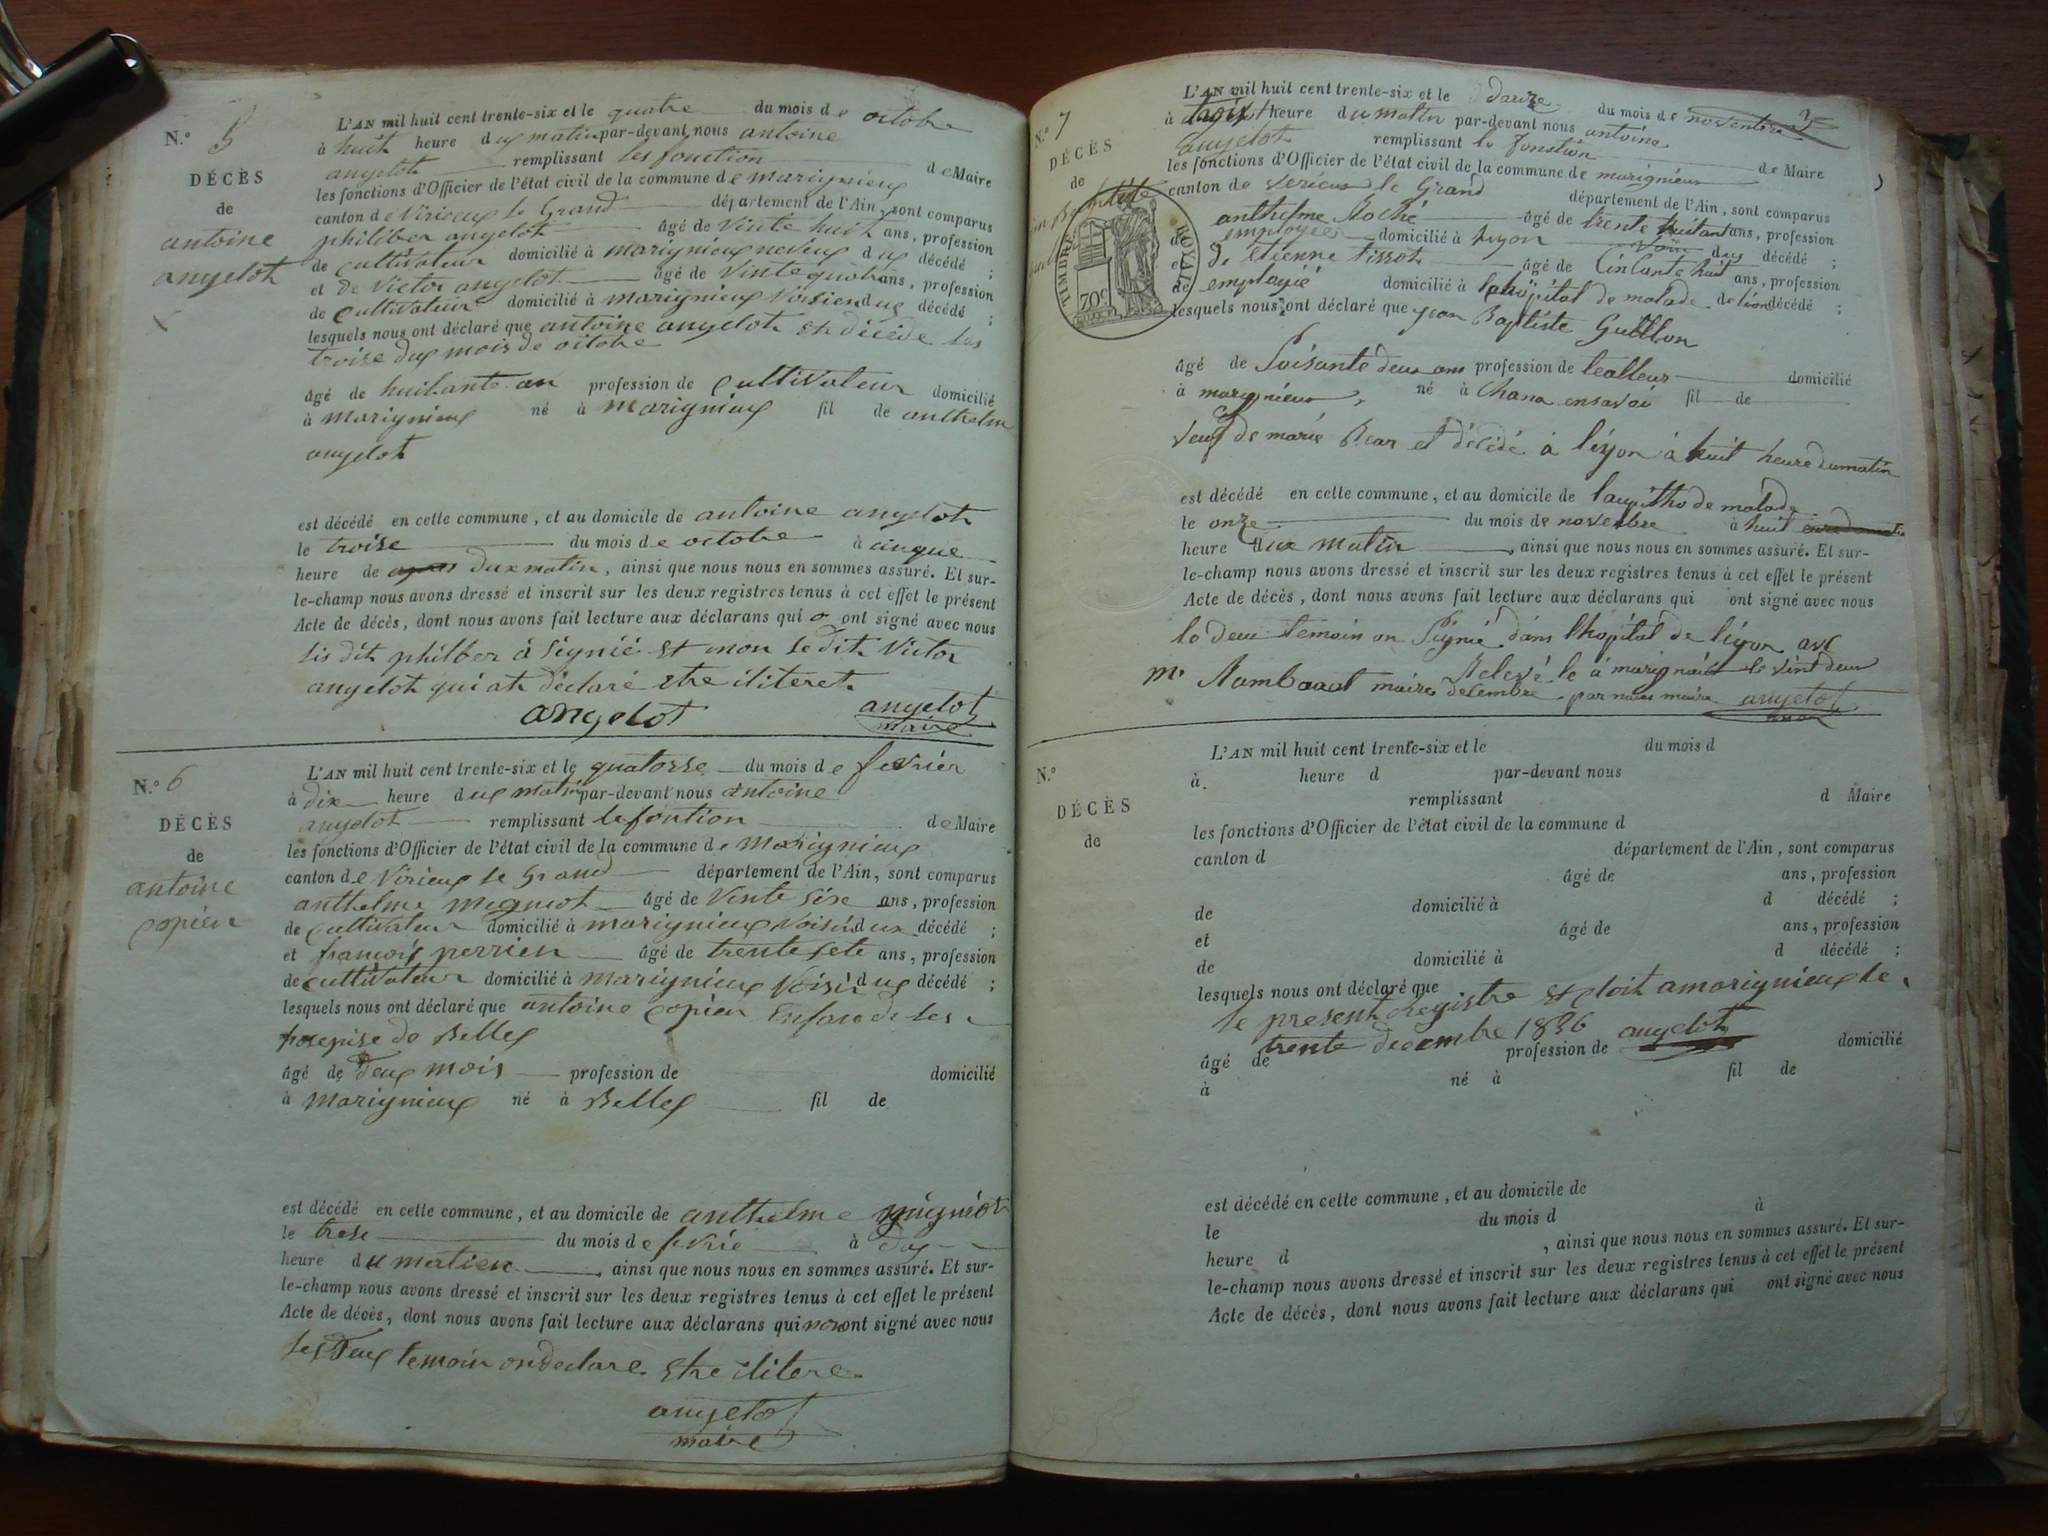 N.° 5
DÉCÈS
de
antoine
angelot
L'AN mil huit cent trente-six et le quatre du mois de octobre
à huit heure dux matin par-devant nous antoine
angelot remplissant les fonction de Maire
les fonctions d'Officier de l'état civil de la commune de marignieux
canton de Virieux le Grand département de l'Ain, sont comparus
philiber angelot âgé de vinte huit ans, profession
de cultivateur domicilié à marignieux neveux dux décédé ;
et de Victor angelot âgé de vinte quatr ans, profession
de cultivateur domicilié à marignieux voisien dux décédé ;
lesquels nous ont déclaré que antoine angelot est décédé les
troise dux mois de octobre
âgé de huitante an profession de cultivateur domicilié
à marignieux né à marignieux fil de anthelm
angelot
est décédé en cette commune, et au domicile de antoine angelot
le troise du mois de octobre à cinque
heure de dux matin, ainsi que nous nous en sommes assuré. Et sur-
le-champ nous avons dressé et inscrit sur les deux registres tenus à cet effet le présent
Acte de décès, dont nous avons fait lecture aux déclarans qui ont signé avec nous
philber à signié et non le dit Victor
angelot qui at déclaré etre iliteret
angelot angelot
maire
N.° 6
DÉCÈS
de
antoine
copien
L'AN mil huit cent trente-six et le quatorse du mois de fevrier
à dix heure dux matin par-devant nous antoine
angelot remplissant le fontion de Maire
les fonctions d'Officier de l'état civil de la commune de Marignieux
canton de Virieux le Grand département de l'Ain, sont comparus
anthelme migniot âgé de vinte sixe ans, profession
de cultivateur domicilié à marignieux voisin dux décédé ;
et françois perrien âgé de trente sete ans, profession
de cultivateur domicilié à marignieux voisin dux décédé ;
lesquels nous ont déclaré que antoine copien Enfan de les
de Belley
âgé de deux mois profession de domicilié
à marignieux né à Belley fil de
est décédé en cette commune, et au domicile de anthelme migniot
le trese du mois de fevrié à dix
heure du matien, ainsi que nous nous en sommes assuré. Et sur-
le-champ nous avons dressé et inscrit sur les deux registres tenus à cet effet le présent
Acte de décès, dont nous avons fait lecture aux déclarans qui non ont signé avec nous
les deux temoin on declare etre ilitere
angelot
maire
N.° 7
DÉCÈS
de
TIMBRE ROYAL
70c
L'AN mil huit cent trente-six et le douze du mois de novembre
à heure du matin par-devant nous antoine
angelot remplissant la fonstion de Maire
les fonctions d'Officier de l'état civil de la commune de marignieux
canton de verieux le Grand département de l'Ain, sont comparus
anthelme Roché âgé de trente huitant ans, profession
de employées domicilié à lyon dux décédé ;
et de Etienne tissot âgé de Cincante huit ans, profession
de employié domicilié à lhôpital de malade de lion décédé ;
lesquels nous ont déclaré que jean Baptiste Guillon
âgé de Soisante deux ans profession de tealleur domicilié
à marignieux, né à Chana ensavoi fil de
veuf de marie Bear et décédé à liyon à huit heure dumatin
est décédé en cette commune, et au domicile de de malade
le onze du mois de novembre à huit
heure dux matin, ainsi que nous nous en sommes assuré. Et sur-
le-champ nous avons dressé et inscrit sur les deux registres tenus à cet effet le présent
Acte de décès, dont nous avons fait lecture aux déclarans qui ont signé avec nous
le deux temoin on signié dans lhopital de liyon avc
mr Rambaud maire Relevé le à marignieu le vint deux
decembre par nous maire angelot
maire
N.°
DÉCÈS
de
L'AN mil huit cent trente-six et le du mois d
à heure d par-devant nous
remplissant d Maire
les fonctions d'Officier de l'état civil de la commune d
canton d département de l'Ain, sont comparus
âgé de ans, profession
de domicilié à d décédé ;
et âgé de ans, profession
de domicilié à d décédé ;
lesquels nous ont déclaré que
le present Registre est cloit a marignieux le
trente decembre 1836 angelot
âgé de profession de domicilié
à né à fil de
est décédé en cette commune, et au domicile de
le du mois d à
heure d , ainsi que nous nous en sommes assuré. Et sur-
le-champ nous avons dressé et inscrit sur les deux registres tenus à cet effet le présent
Acte de décès, dont nous avons fait lecture aux déclarans qui ont signé avec nous